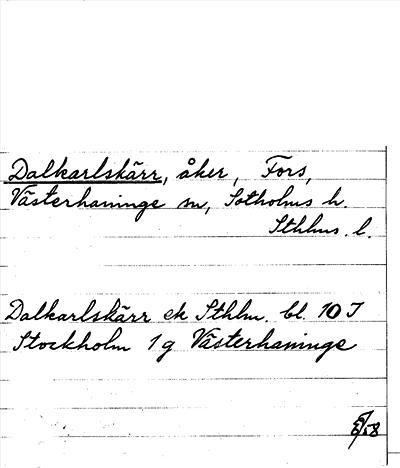 Dalkarlskärr, åker, Fors,
Västerhaninge sn, Sotholms h.
Sthlms. l.
Dalkarlskärr ek Sthlm. bl. 10 J
Stockholm 1g Västerhaninge